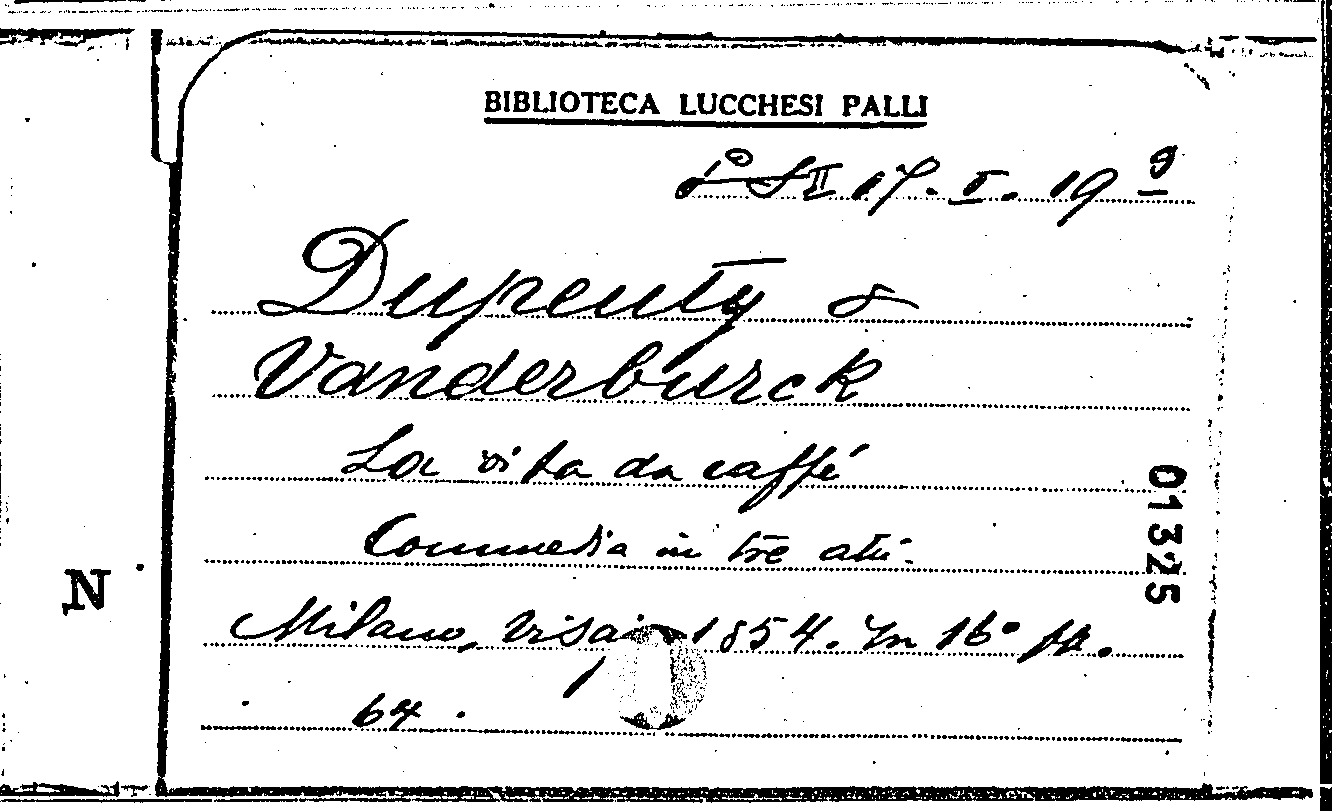 BIBLIOTECA LUCCHESI PALLI
II 17. I. 19 9
Dupeuty e
Vanderburck
La vita da caffé
Commedia in tre atti.
Milano, Visaj 1854. In 16° pp.
64.
01325
N